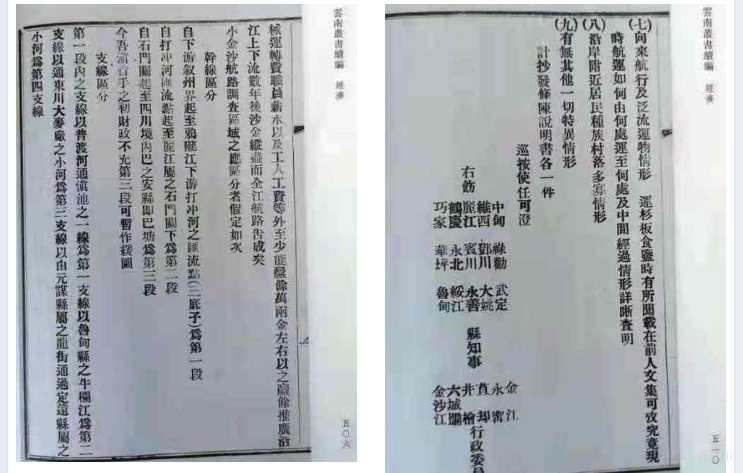 雲南叢書續編　經濟
五〇六
械運輸費職員薪水以及工人工資等外至少能贏餘萬兩金左右以之贏餘推廣沿
江上下流數年後沙金縱盡而全江航路告成矣
小金沙航路調查區域之應區分者假定如次
幹線區分
自下游叙州界起至鴉礲江下游打冲河之匯流點(三底子)為第一段
自打冲河匯流點起至麗江屬之石門關下為第二段
自石門關起至四川境內巴之安縣即巴塘為第三段
今吾滇着手之初財政不充第三段可暫作緩圖
支線區分
第一段內之支線以普渡河通滇池之一線為第一支線以魯甸縣之牛欄江為第二
支線以通東川大麥廠之小河為第三支線以由元謀縣屬之龍街通過定遠縣屬之
小河為第四支線
雲南叢書續編　經濟
五一〇
(七)向來航行及泛流運物情形　運杉板食鹽時有所聞載在前人文集可攷究竟現
時航運如何由何處運至何處及中間經過情形詳晰查明
(八)沿岸附近居民種族村落多寡情形
(九)有無其他一切特異情形
計抄發條陳說明書各一件
巡按使任可澄
右飭
中甸　祿勸　武定
維西　鄧川　大姚
麗江　賓川　永善
鶴慶　永北　綏江
巧家　華坪　魯甸
縣知事
金江
永甯
苴却
井檜
六城
金沙江
行政委員